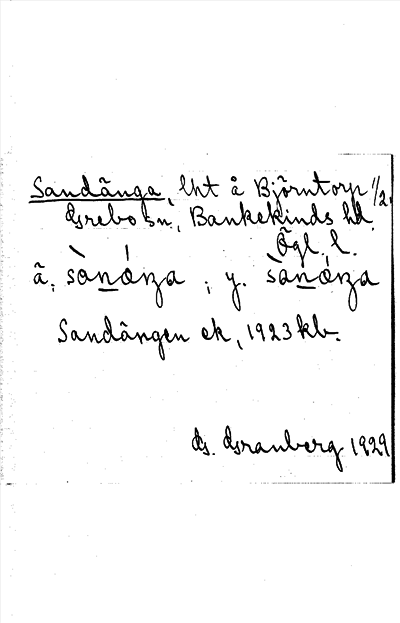 Sandänga, lht å Björntorp 1/2,
Grebo sn, Bankekinds hd,
Ögl. l.
ä. sànǽŋa ; y. sànǽŋa
Sandängen ek, 1923 kb.
G. Granberg 1929